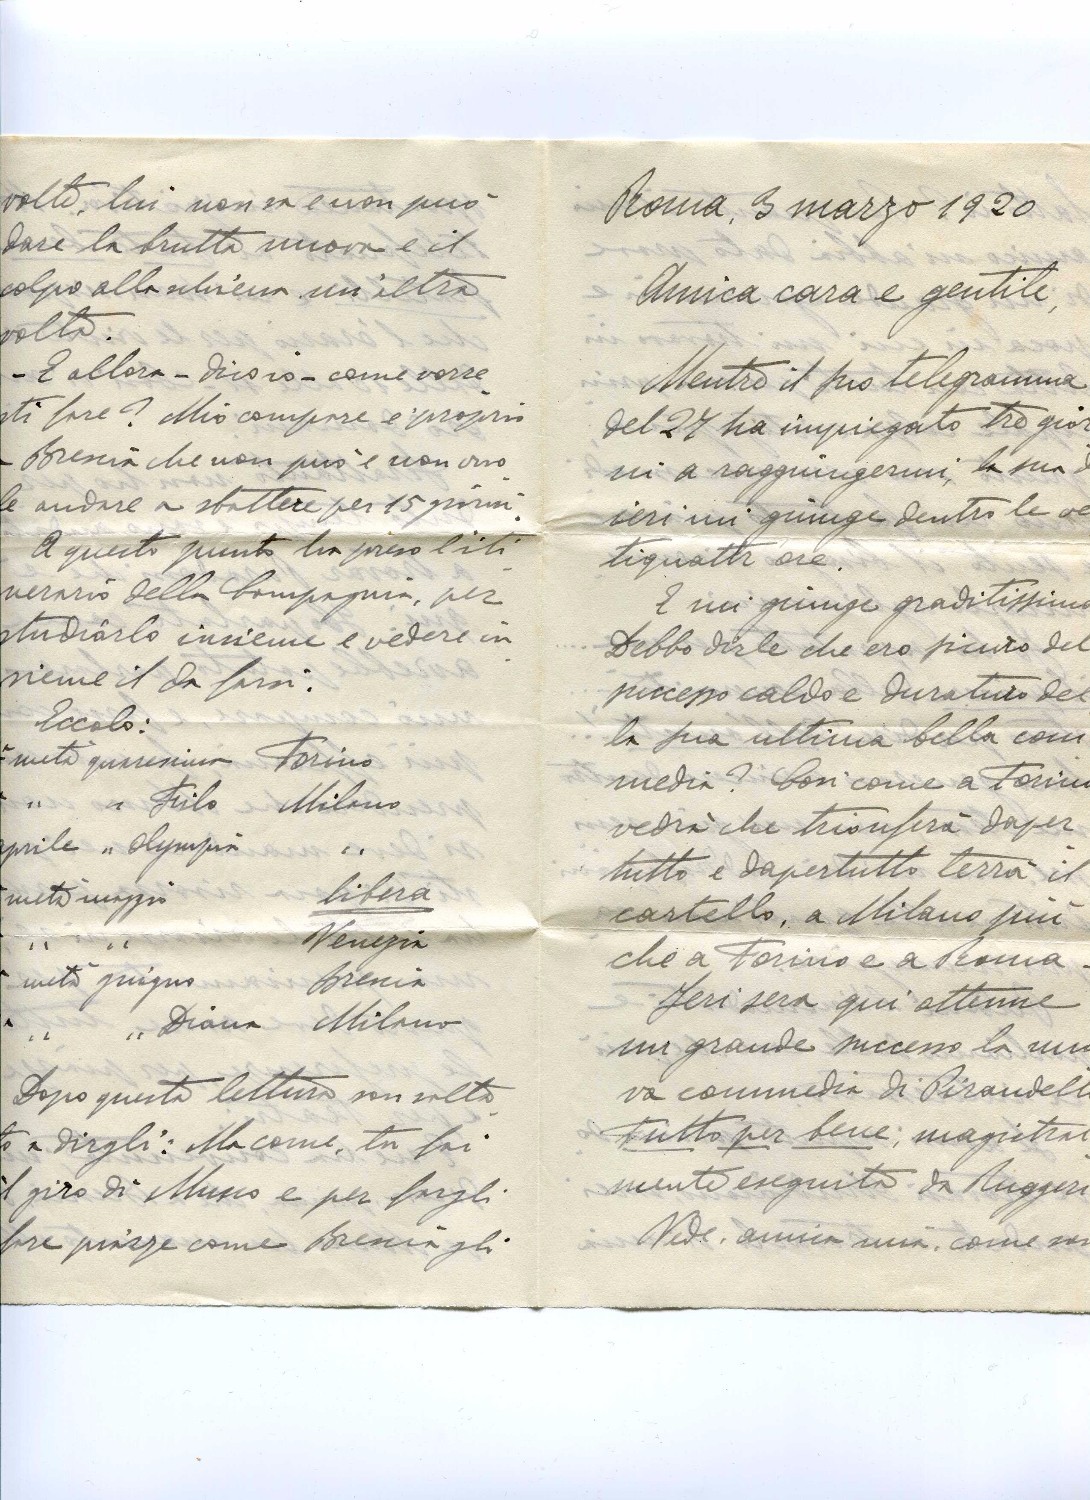 volta, lui non sa e non può
dare la brutta nuova e il
colpo alla schiena un'altra
volta.
– E allora – dico io – come vorre
sti fare? Mio compare e' proprio
a Brescia che non può e non vuo
le andare a sbattere per 15 giorni.
A questo punto ha preso l'iti
nerario della Compagnia, per
studiarlo insieme e vedere in
sieme il da farsi.
Eccolo:
metà quaresima Torino
" " Filo Milano
aprile " Olympia "
metà maggio libera
" " Venezia
metà giugno Brescia
" " Diana Milano
Dopo questa lettura son salta
to a dirgli: Ma come, tu fai
il giro di Musco e per fargli
fare piazze come Brescia gli
Roma, 3 marzo 1920
Amica cara e gentile,
Mentre il suo telegramma
del 27 ha impiegato tre gior
ni a raggiungermi, la sua d
ieri mi giunge dentro le ve
tiquattr ore.
E mi giunge graditissima
Debbo dirle che ero sicuro del
successo caldo e duraturo del
la sua ultima bella com
media? Così come a Torino
vedrà che trionferà daper
tutto e dapertutto terrà il
cartello, a Milano più
che a Torino e a Roma –
Jeri sera qui ottenne
un grande successo la nuo
va commedia di Pirandell
Tutto per bene, magistral
mente eseguita da Ruggeri
Vede, amica mia, come son